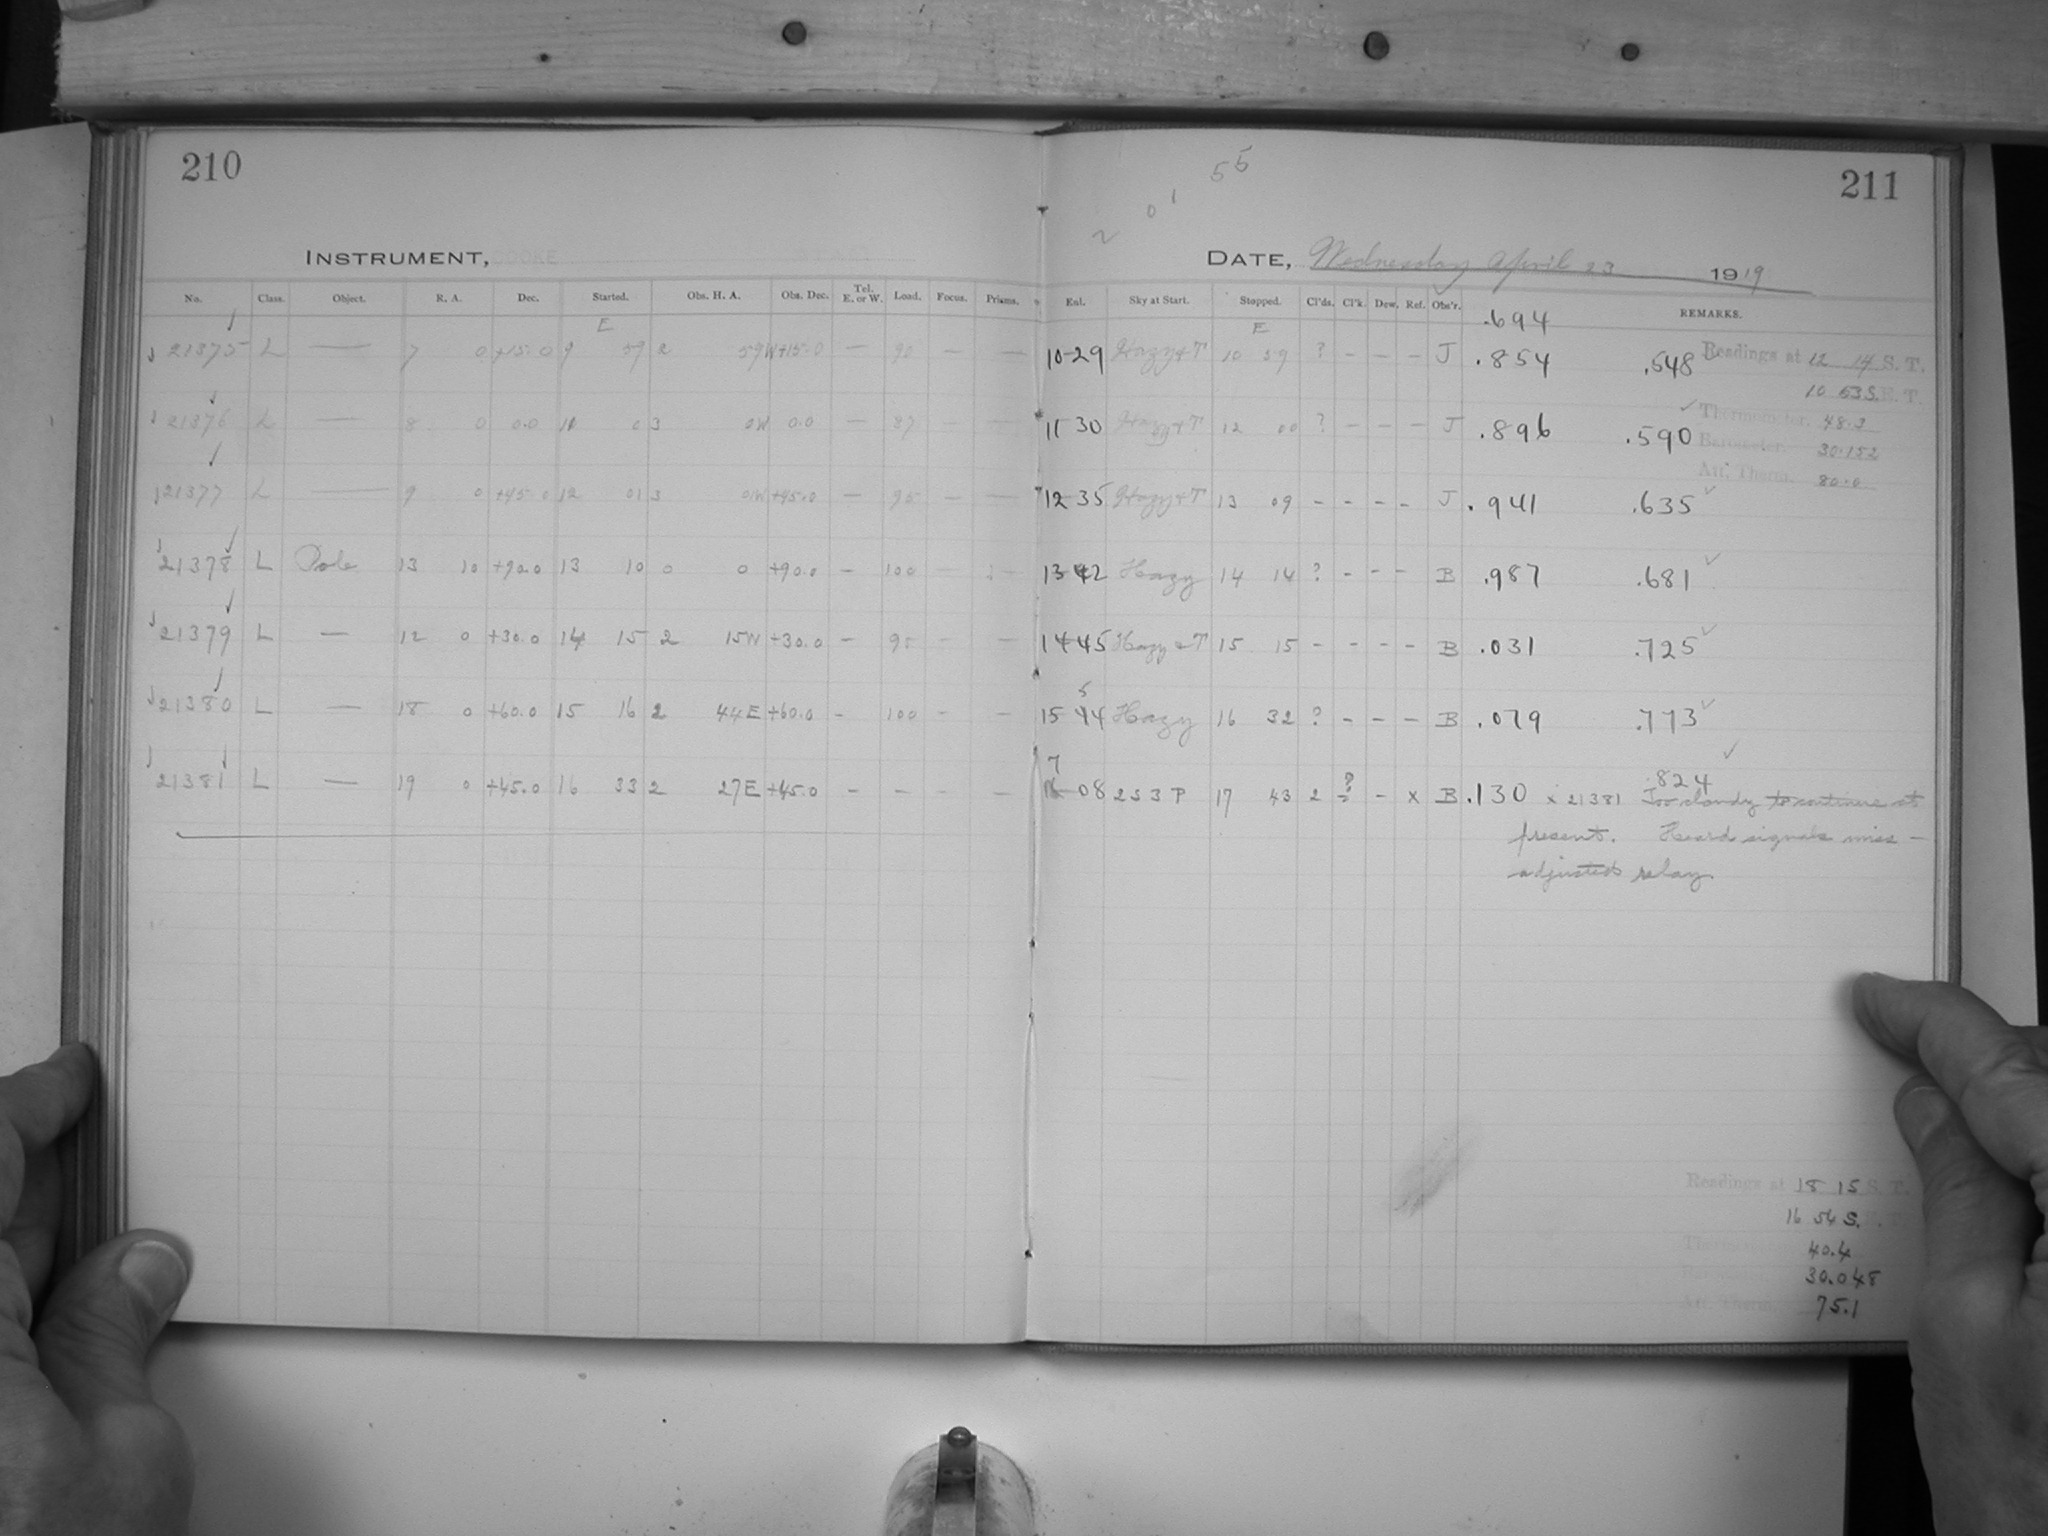 210
INSTRUMENT, COOKE
No. Class. Object. R. A. Dec. Started. Obs. H. A. Obs. Dec. Tel. E. or W. Load. Focus. Prisms.
E
21375 L — 7 0 +15.0 9 59 2 59W +15.0 — 90 — —
21376 L — 8 0 0.0 11 0 3 0W 0.0 — 87 — —
21377 L — 9 0 +45.0 12 01 3 01W +45.0 — 95 — —
21378 L Pole 13 10 +90.0 13 10 0 0 +90.0 — 100 — —
21379 L — 12 0 +30.0 14 15 2 15W +30.0 — 95 — —
21380 L — 18 0 +60.0 15 16 2 44E +60.0 — 100 — —
21381 L — 19 0 +45.0 16 33 2 27E +45.0 — — — —
55
0 1
2
211
DATE, Wednesday April 23 1919
Enl. Sky at Start. Stopped. Cl'ds. Cl'k. Dew. Ref. Obs'r. REMARKS.
E .694
10-29 Hazy+T 10 59 ? - - - J .854 .548 Readings at 12 14 S. T.
10 53 S. E. T.
11 30 Hazy+T 12 00 ? - - - J .896 .590 Thermometer. 48.3
Barometer. 30.152
Att. Therm. 80.0
12-35 Hazy+T 13 09 - - - - J .941 .635
13-42 Hazy 14 14 ? - - - B .987 .681
14-45 Hazy+T 15 15 - - - - B .031 .725
5
15 44 Hazy 16 32 ? - - - B .079 .773
7
16-08 2S3P 17 43 2 ? - x B .130 .824
x 21381 Too cloudy to continue at
present. Heard signals miss -
adjusted relay
Readings at 18 15 S. T.
16 54 S.
40.4
30.048
Att. Therm. 75.1